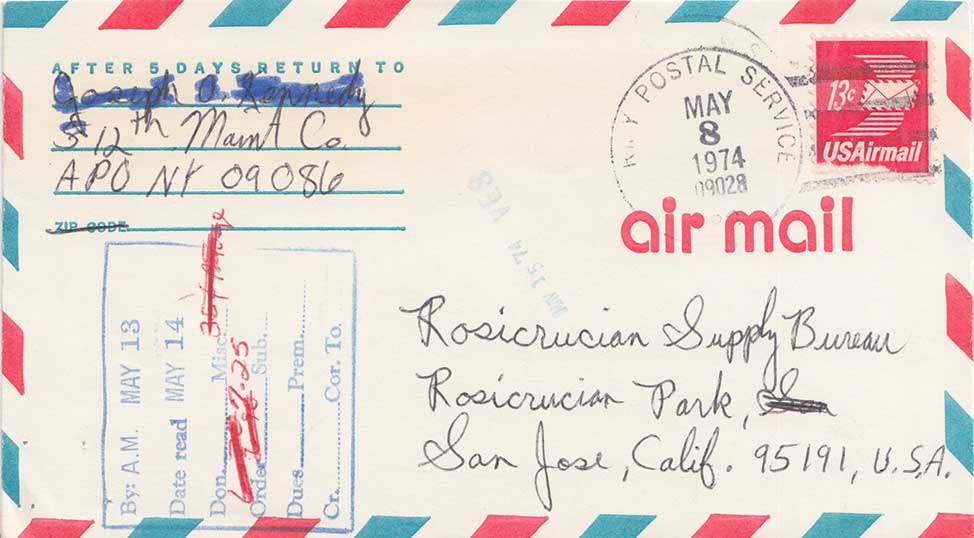 AFTER 5 DAYS RETURN TO
Joseph A. Kennedy
512th Maint Co.
APO NY 09086
ZIP CODE
POSTAL SERVICE
MAY
8
1974
09028
13c
USAirmail
air mail
VEB
MAY 15 74
Rosicrucian Supply Bureau
Rosicrucian Park,
San Jose, Calif. 95191, U.S.A.
By: A.M. MAY 13
Date read MAY 14
Don. Misc.
Order Sub.
Dues Prem.
Cr. Cor. To.